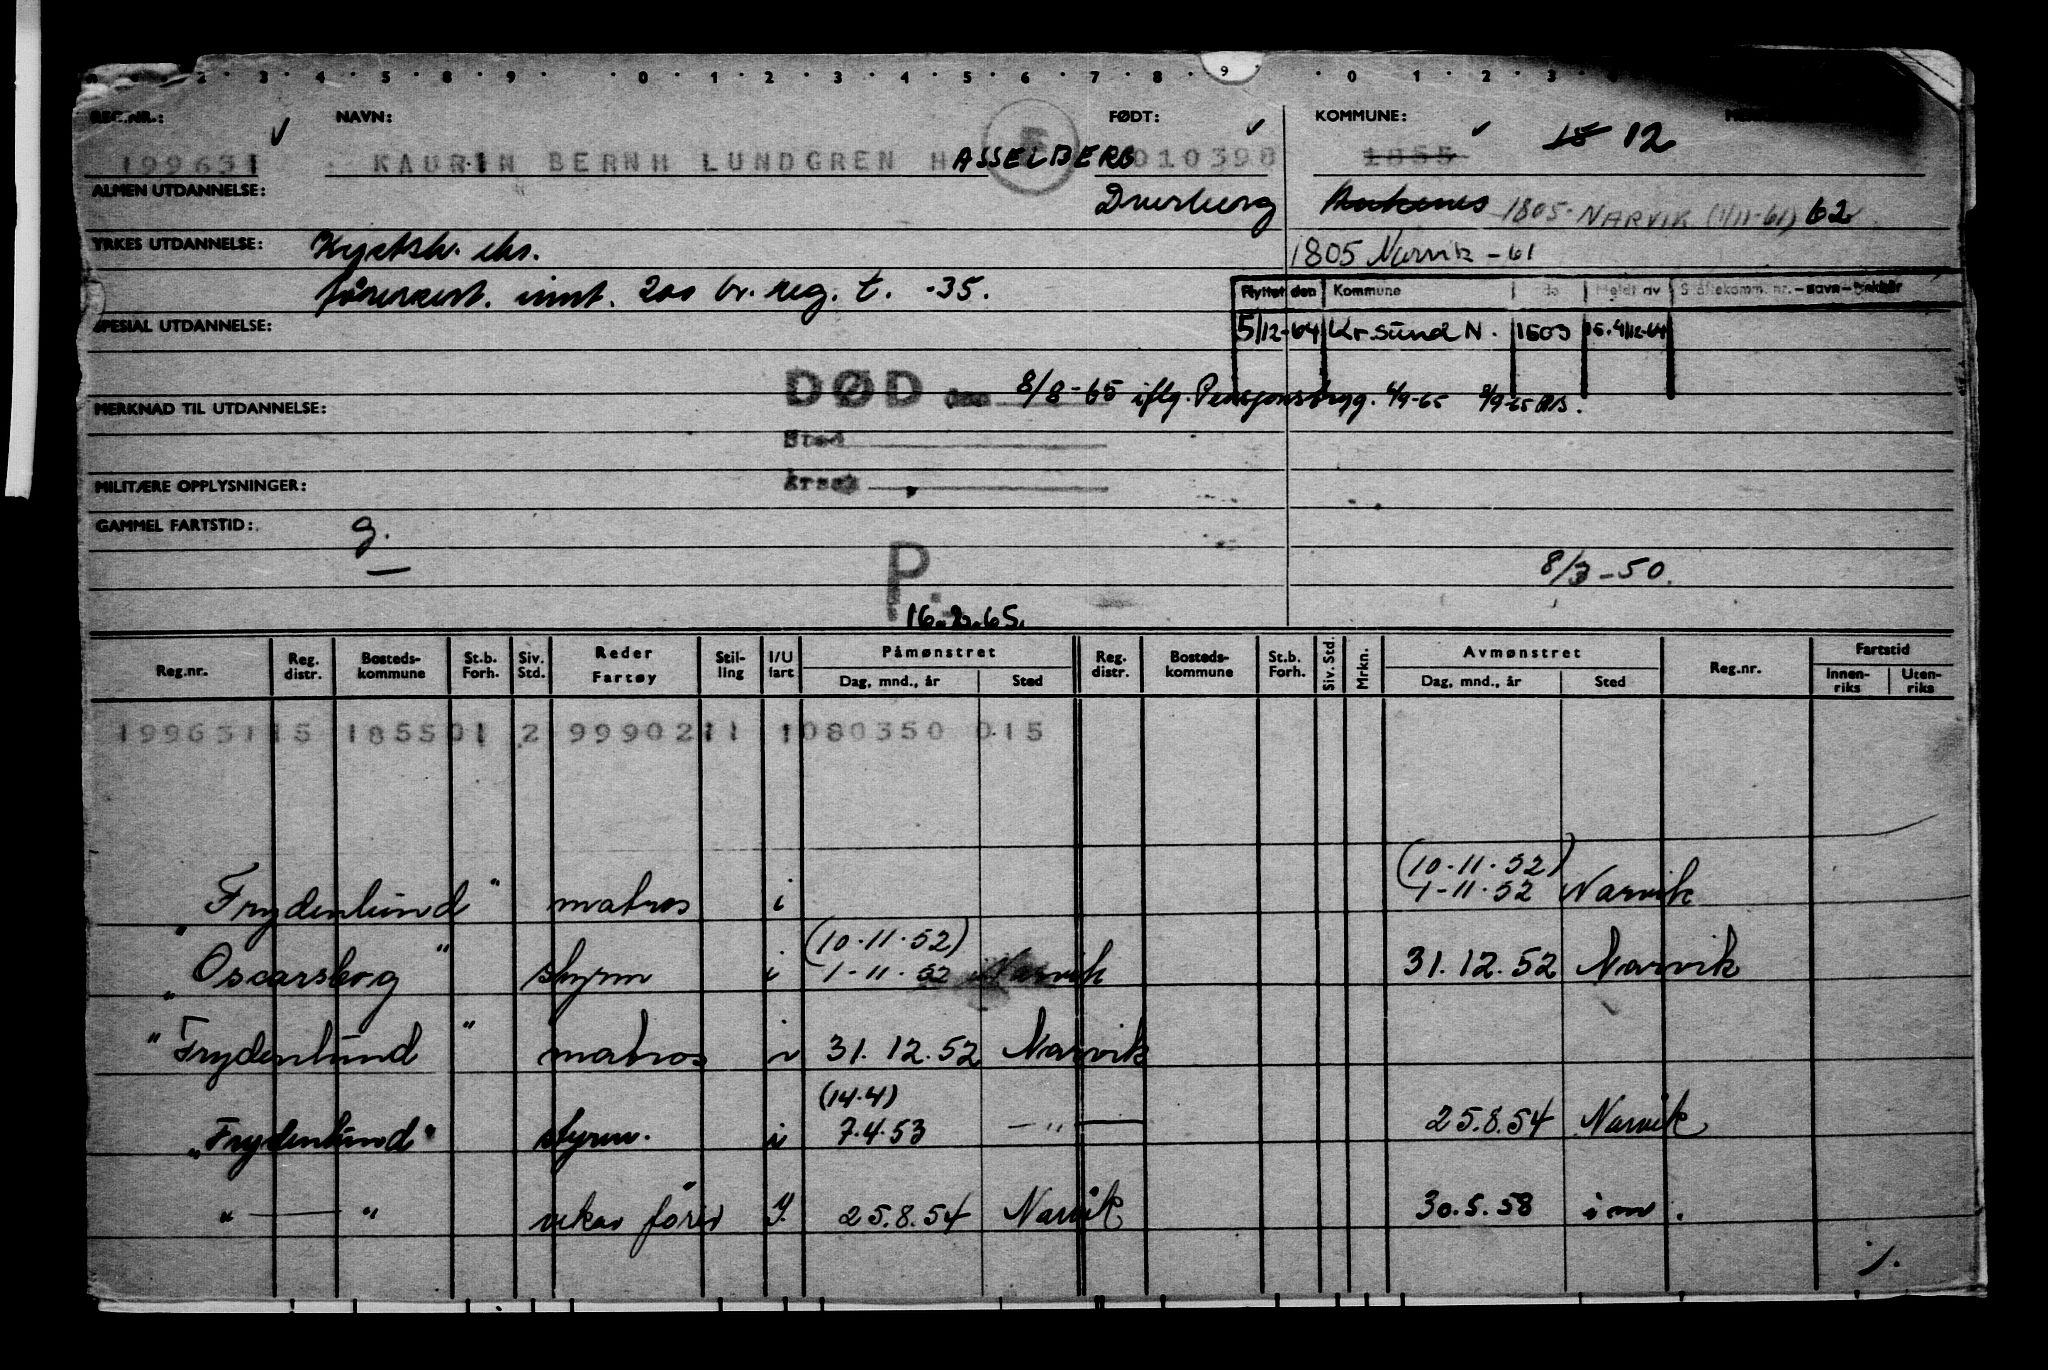 2 · 3 · 4 · 5 · 8 · 9 · 0 · 1 · 2 · 3 · 4 · 5 · 6 · 7 · 8 · 9 · 0 1 2 3
REG.NR.: NAVN: FØDT: KOMMUNE:
199631 KAURIN BERNH LUNDGREN HASSELBERG 010398 1855 15 12
ALMEN UTDANNELSE: Dverberg Ankenes 1805 NARVIK (1/11-61) 62
YRKES UTDANNELSE: Kystsk. eks. 1805 Narvik - 61
förersert. innt. 200 br. reg. t. -35.
Flyttet den Kommune Meldt av
SPESIAL UTDANNELSE: 5/12-64 Kr.sund N. 1503
DØD den 8/8-65 iflg. Pensjonstryg. 4/9-65 8/9-65
MERKNAD TIL UTDANNELSE:
Sted
Årsak
MILITÆRE OPPLYSNINGER:
GAMMEL FARTSTID: g.
P. 8/3-50.
Reg.nr. Reg. distr. Bosteds-kommune St.b. Forh. Siv. Std. Reder Fartøy Stil-ling I/U fart Påmønstret Dag, mnd., år Sted Reg. distr. Bosteds-kommune St.b. Forh. Siv. Std. Mrkn. Avmønstret Dag, mnd., år Sted Reg.nr. Fartstid Innen-riks Uten-riks
199631 15 1855 01 2 9990211 1080350 015
(10-11-52)
"Frydenlund" matros i 1-11-52 Narvik
(10-11-52)
"Oscarsborg" styrm i 1-11-52 Narvik 31.12.52 Narvik
"Frydenlund" matros i 31.12.52 Narvik
(14.4)
"Frydenlund" styrm. i 7.4.53 — " — 25.8.54 Narvik
" — " vikar förer I. 25.8.54 Narvik 30.5.58 i m.